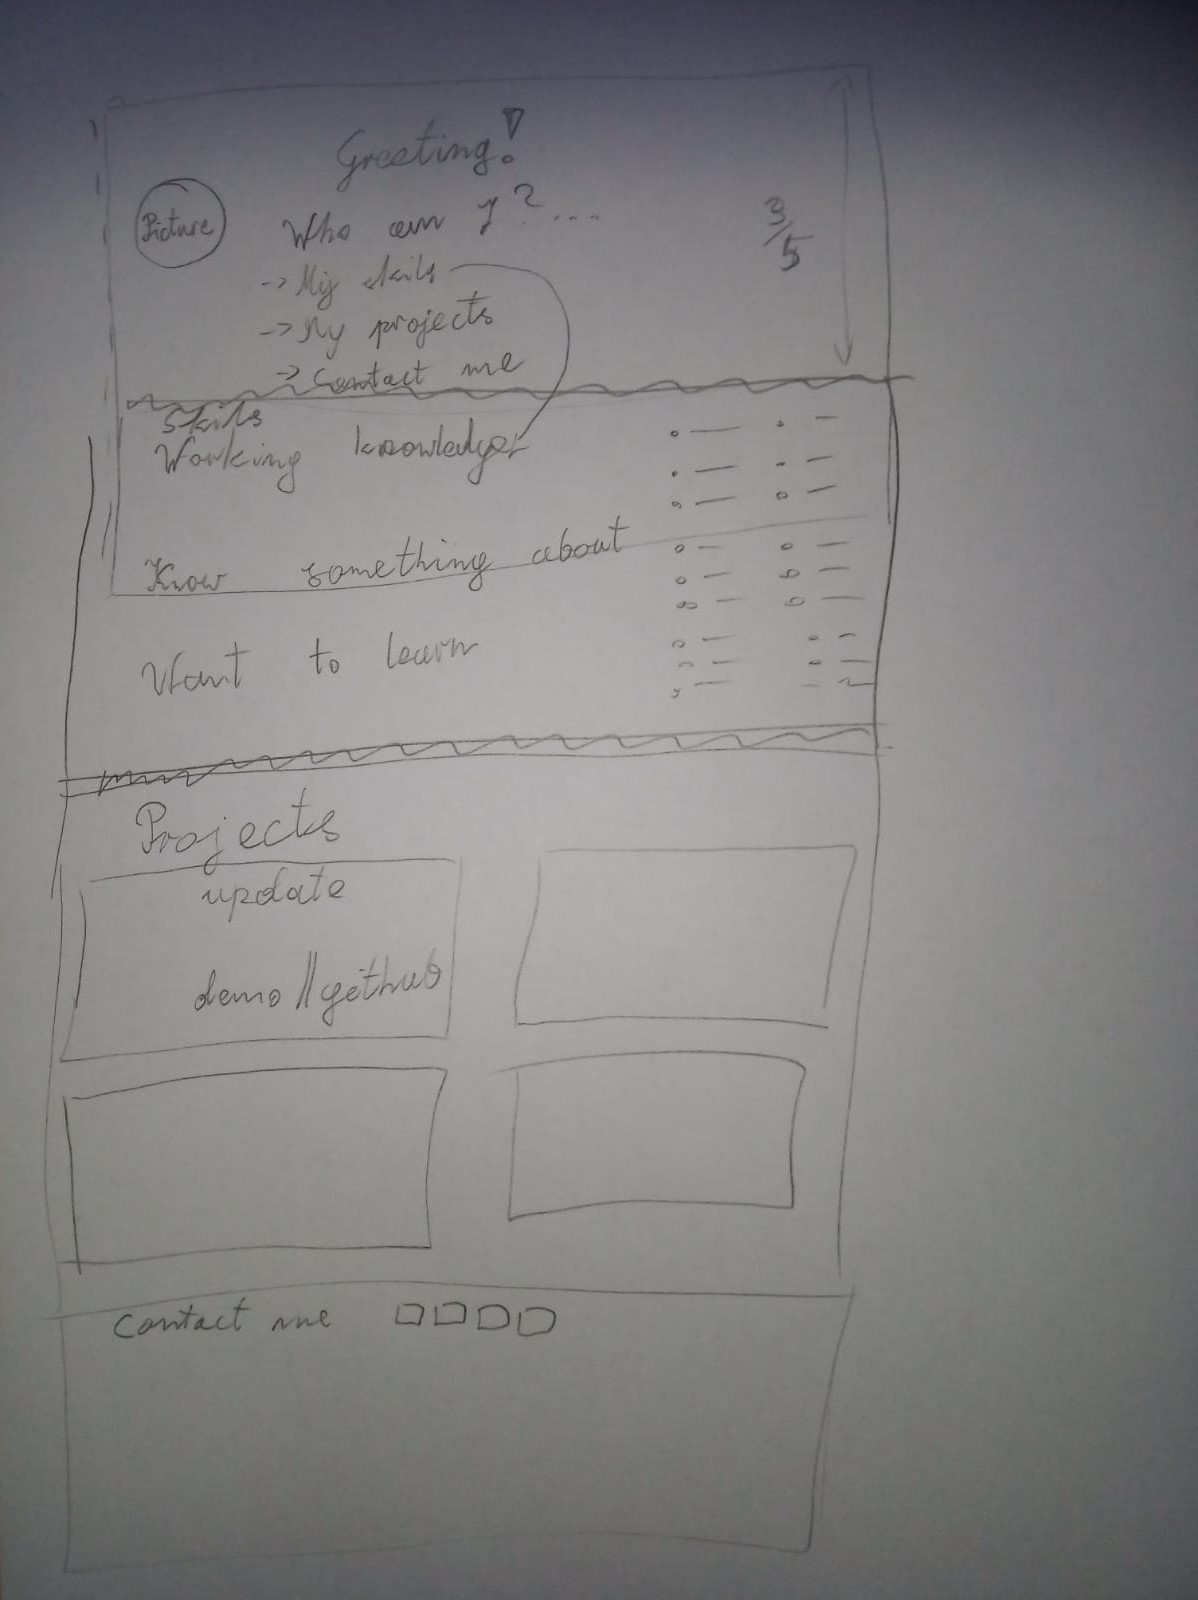 Greeting!
Picture
Who am I?...
3/5
-> My skils
-> My projects
-> Contact me
Skils
Working knowledge
Know something about
Want to learn
Projects
update
demo // gethub
Contact me